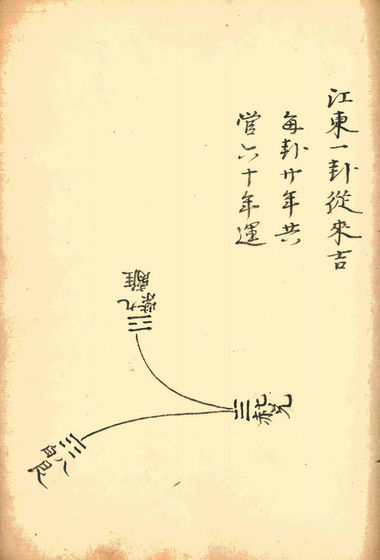 江東一卦從來吉
每卦廿年共
管六十年運
九紫
離
七赤
兌
八白
艮